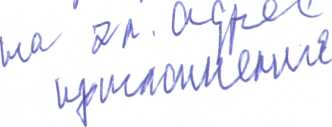 на эл. адрес
приглашение